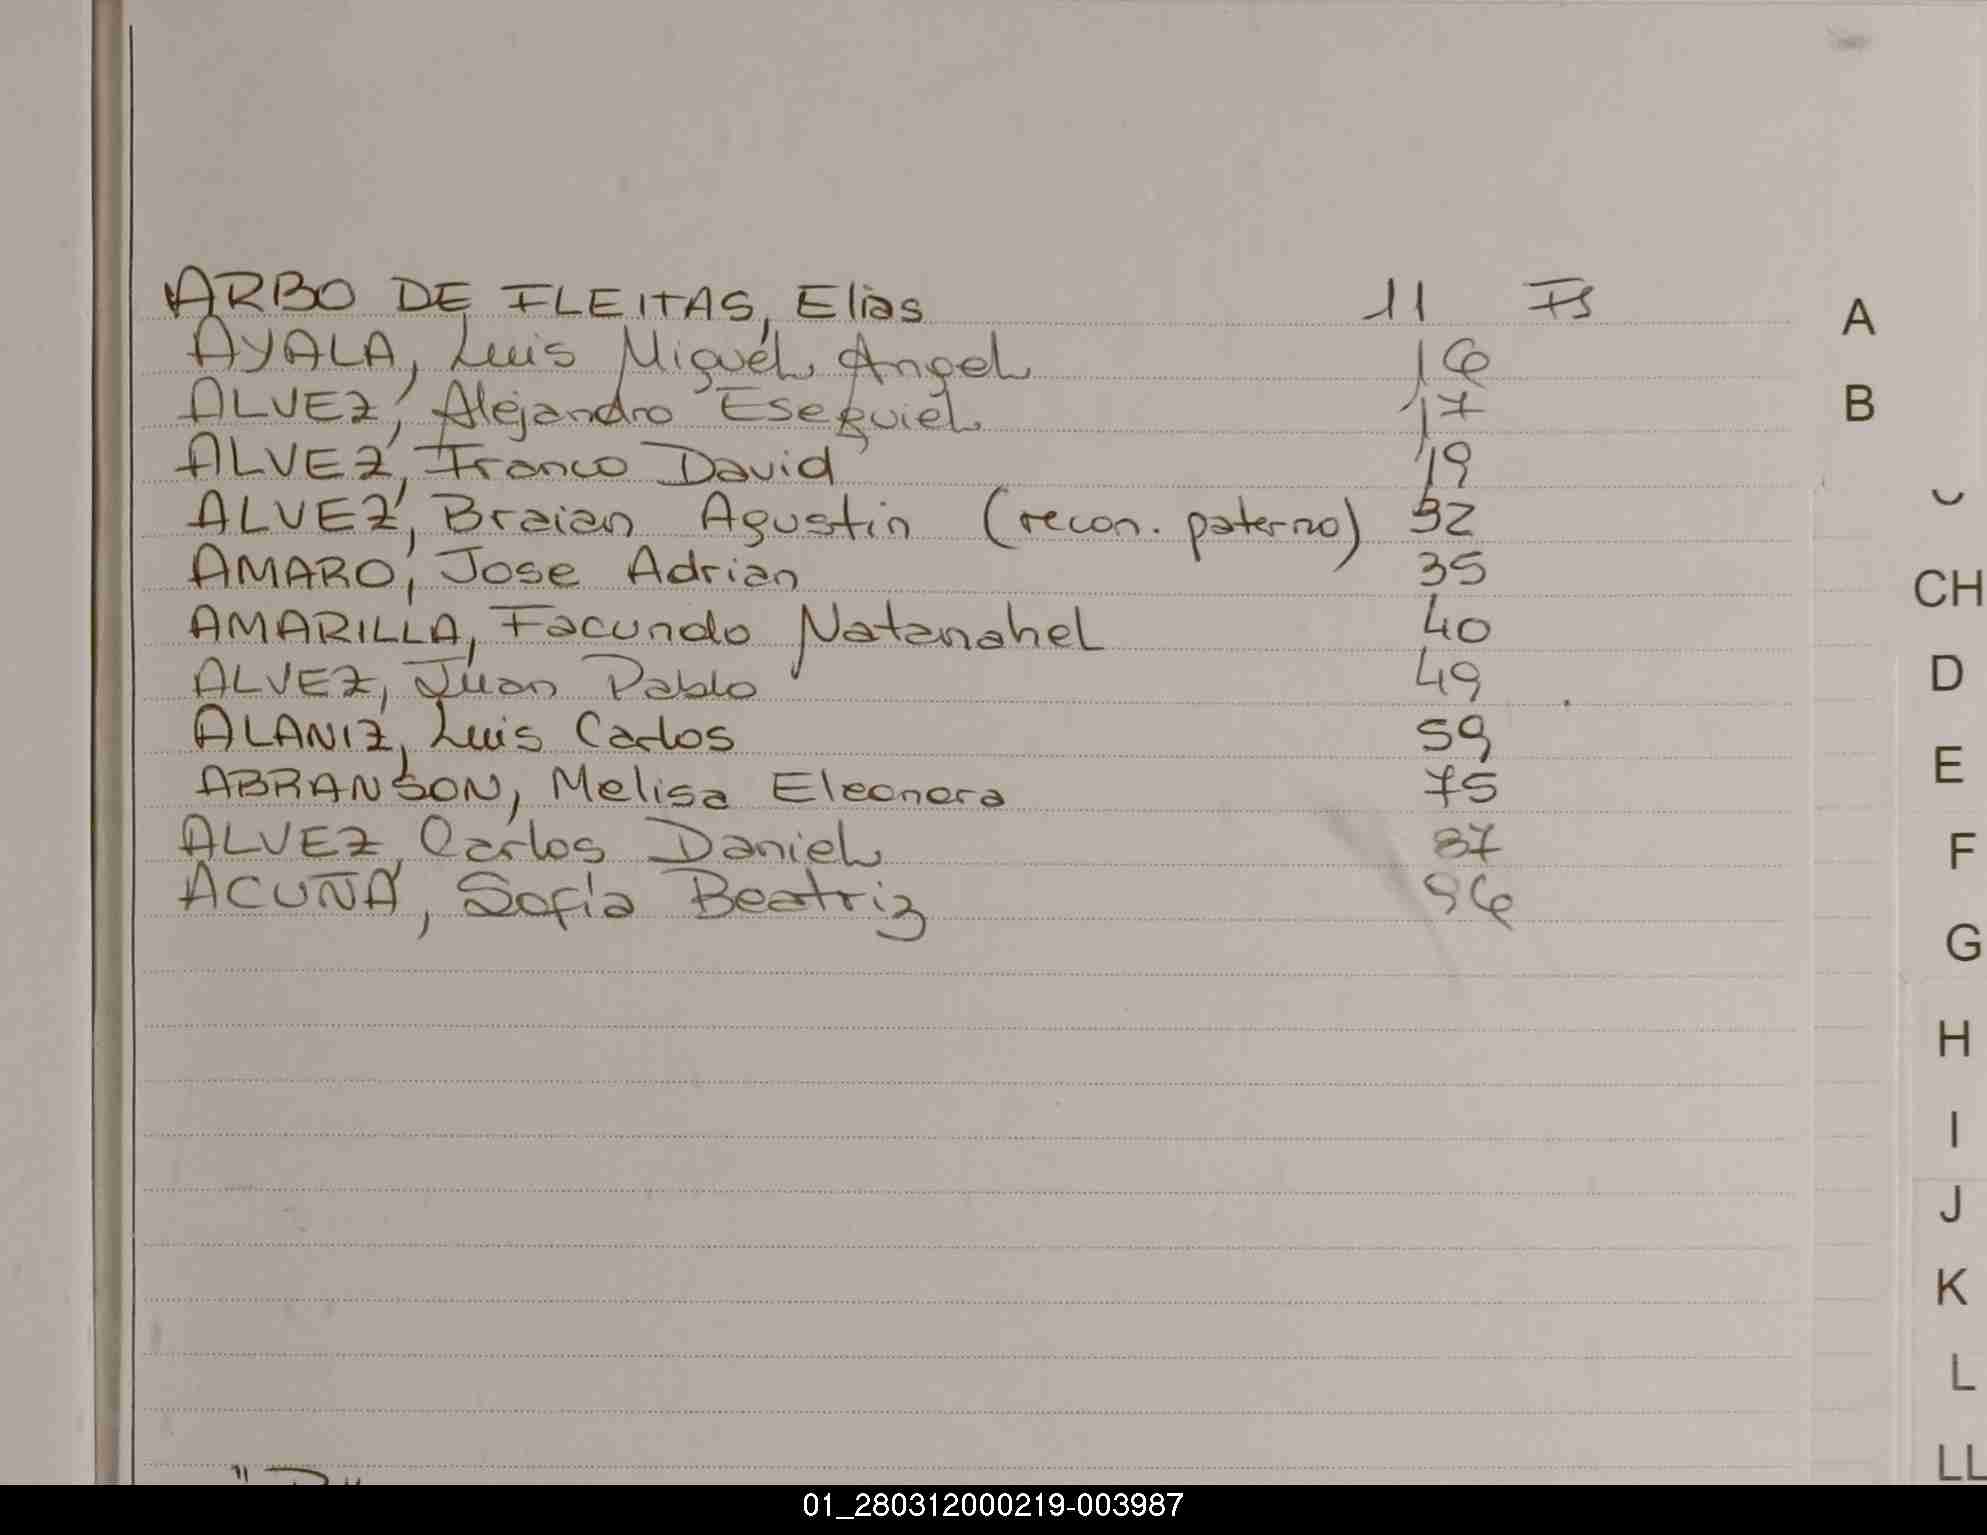 ARBO DE FLEITAS, Elías 11 Fs
AYALA, Luis Miguel Angel 16
ALVEZ, Alejandro Esequiel 17
ALVEZ, Franco David 19
ALVEZ, Braian Agustin (recon. paterno) 32
AMARO, Jose Adrian 35
AMARILLA, Facundo Natanahel 40
ALVEZ, Juan Pablo 49
ALANIZ, Luis Carlos 59
ABRANSON, Melisa Eleonora 75
ALVEZ, Carlos Daniel 87
ACUÑA, Sofía Beatriz 96
A
B
CH
D
E
F
G
H
I
J
K
L
LL
01_280312000219-003987